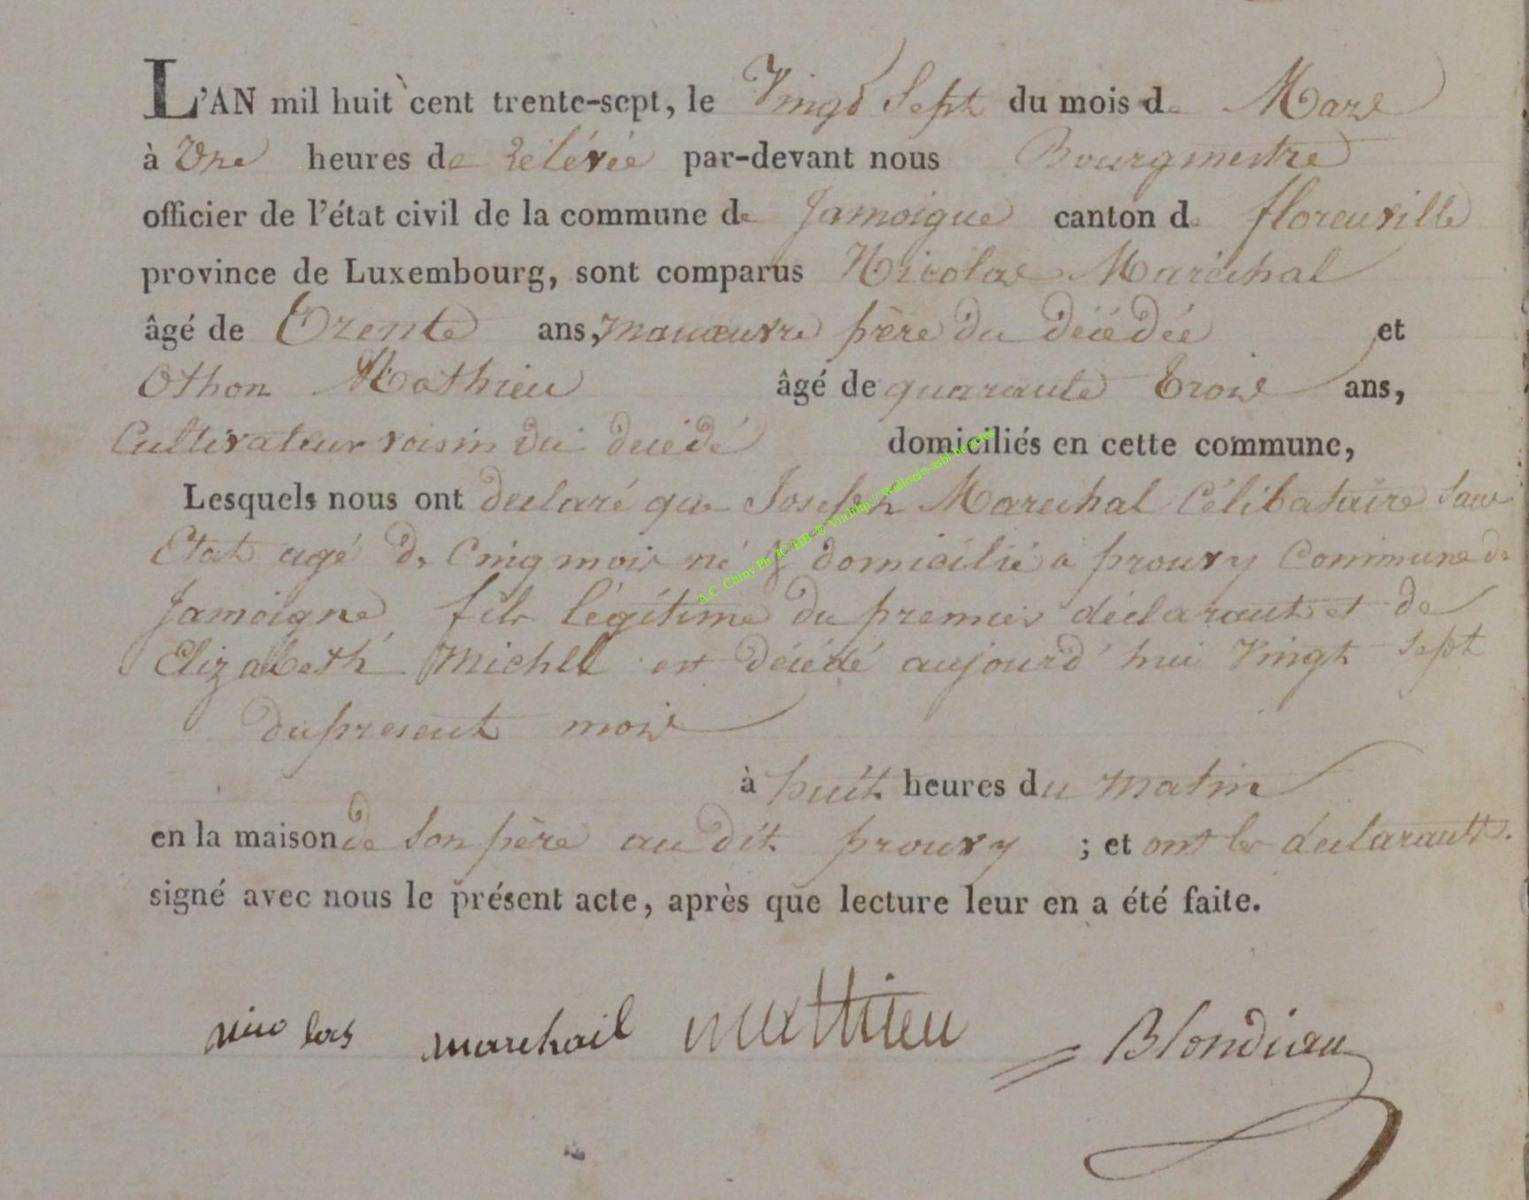 L'AN mil huit cent trente-sept, le Vingt Sept du mois de Mars
à Une heures de rélévée par-devant nous Bourgmestre
officier de l'état civil de la commune de Jamoigne canton de florenville
province de Luxembourg, sont comparus Nicolas Maréchal
âgé de Trente ans, manœuvre père du décédée et
Othon Mathieu âgé de quarante Trois ans,
Cultivateur voisin du décédé domiciliés en cette commune,
Lesquels nous ont declaré que Joseph Marechal Célibataire sans
Etat agé de Cinq mois né & domicilié a prouvy Commune de
Jamoigne fils légitime du premier déclarant et de
Elizabeth Michel est décédé aujourd'hui Vingt Sept
du present mois
à huit heures du matin
en la maison de Son père au dit prouvy ; et ont les declarants.
signé avec nous le présent acte, après que lecture leur en a été faite.
nico las marchail mathieu Blondiau